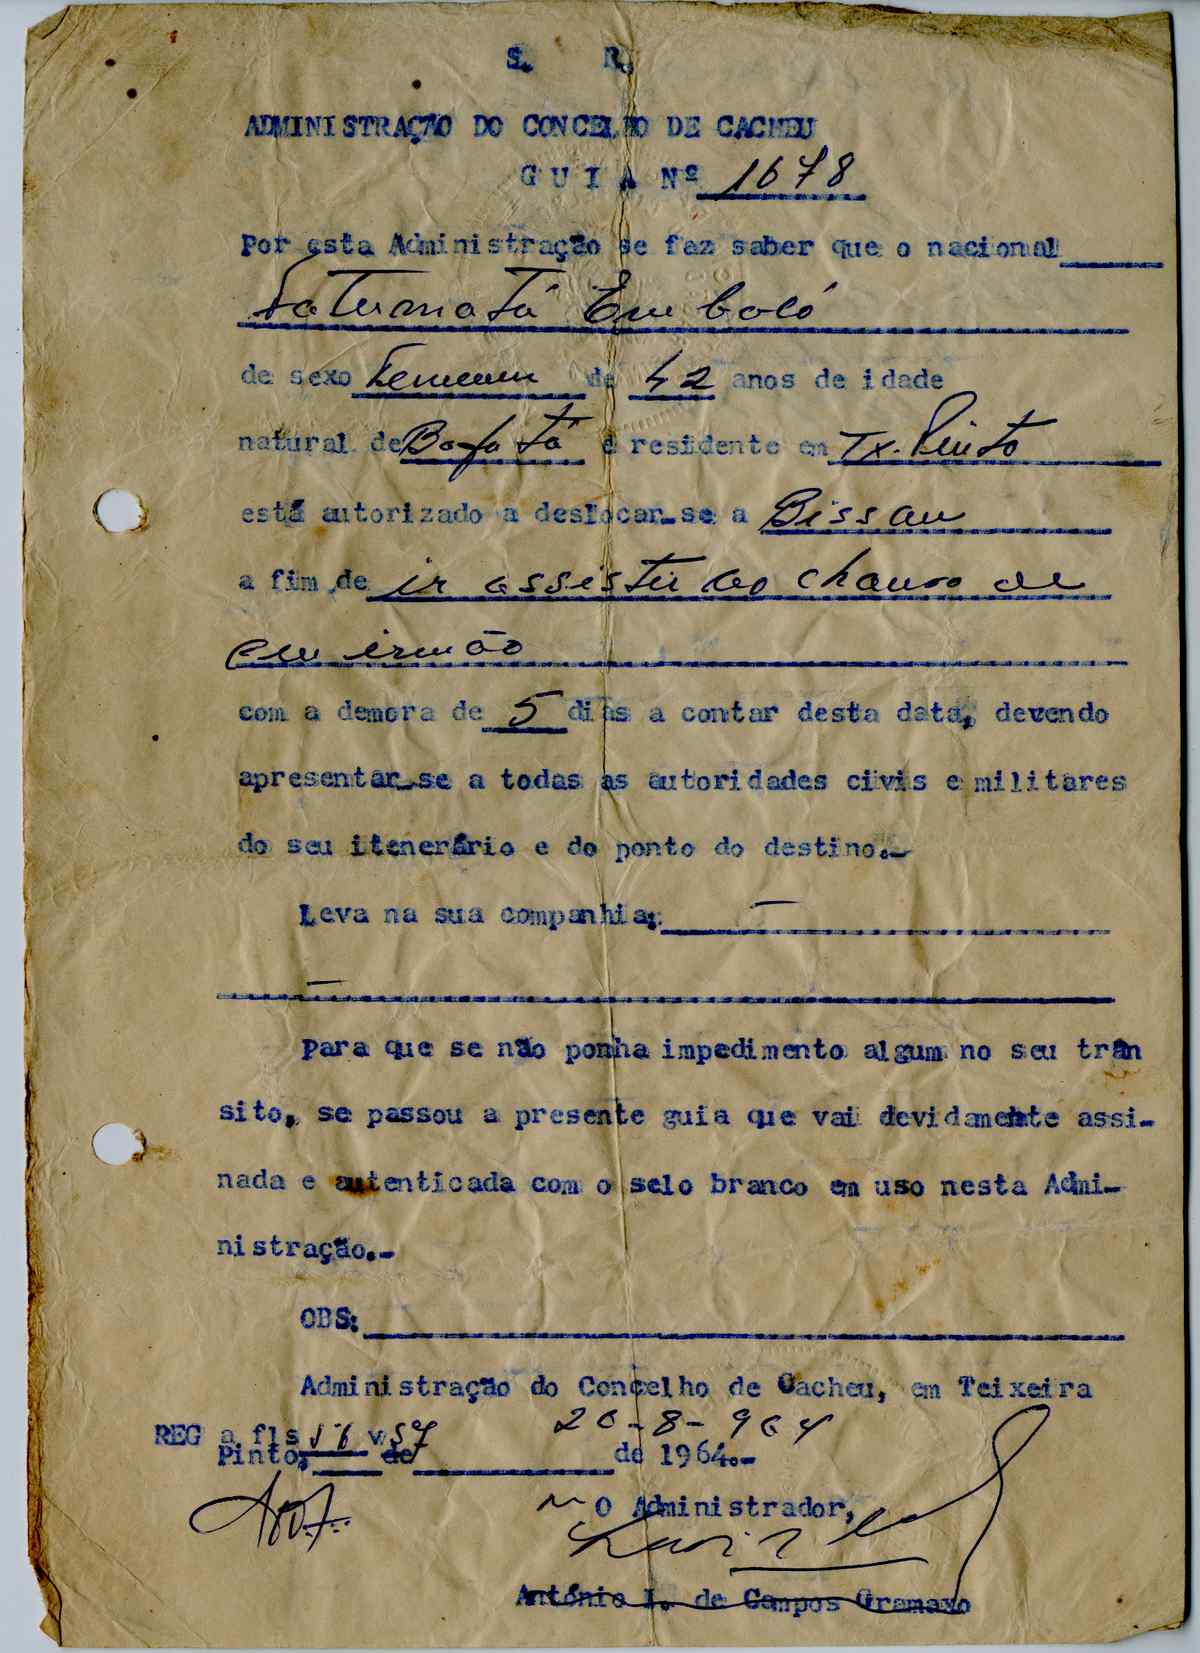 S. R.
ADMINISTRAÇÃO DO CONCELHO DE CACHEU
GUIA Nº 1678
Por esta Administração se faz saber que o nacional
Fatumatá Embaló
de sexo Femenin de 42 anos de idade
natural de Bafatá e residente em Tx. Pinto
está autorizado a deslocar-se a Bissau
a fim de ir assistir ao choro de
seu irmão
com a demora de 5 dias a contar desta data, devendo
apresentar-se a todas as autoridades civis e militares
do seu itenerário e do ponto do destino.-
Leva na sua companhia: —
—
Para que se não ponha impedimento algum no seu trân
sito, se passou a presente guia que vai devidamente assi-
nada e autenticada com o selo branco em uso nesta Admi-
nistração.-
OBS:
Administração do Concelho de Cacheu, em Teixeira
20-8-964
REG a fls 56 v 57
Pinto, de de 1964.-
O Administrador,
António L. de Campos Gramaxo